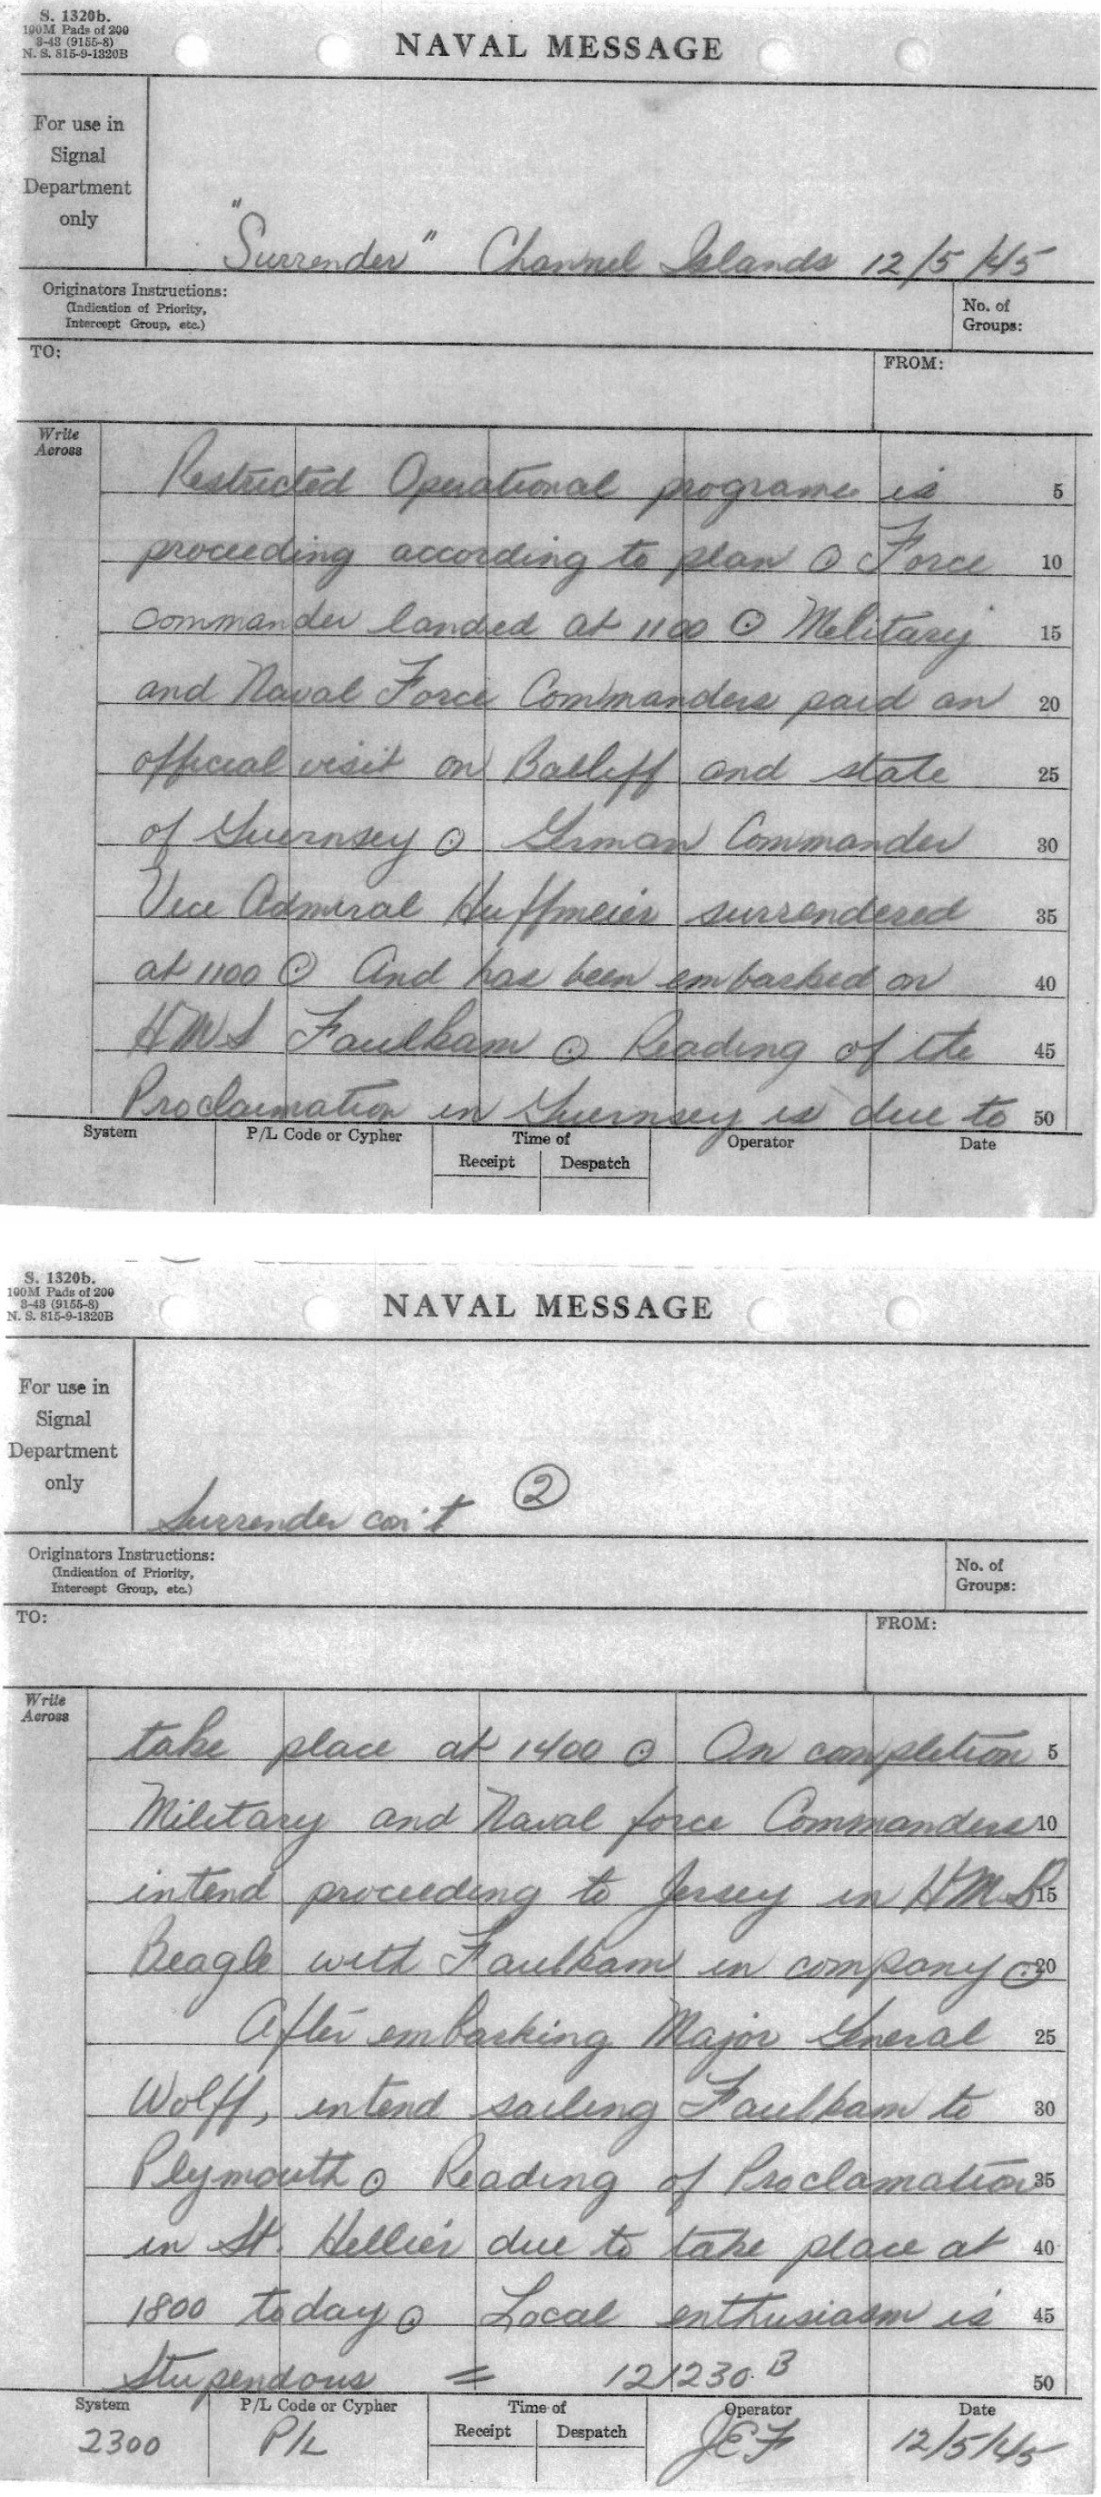 S. 1320b.
100M Pads of 200
3-43 (9155-8)
N. S. 815-9-1320B
NAVAL MESSAGE
For use in
Signal
Department
only
"Surrender" Channel Islands 12/5/45
Originators Instructions:
(Indication of Priority,
Intercept Group, etc.)
No. of
Groups:
TO:
FROM:
Write
Across
Restricted Operational programe is 5
proceeding according to plan ⊙ Force 10
commander landed at 1100 ⊙ Military 15
and Naval Force Commanders paid an 20
official visit on Bailiff and state 25
of Guernsey ⊙ German Commander 30
Vice Admiral Huffmeier surrendered 35
at 1100 ⊙ And has been embarked on 40
HMS Faulkam ⊙ Reading of the 45
Proclaimation in Guernsey is due to 50
System P/L Code or Cypher Time of Operator Date
Receipt Despatch
S. 1320b.
100M Pads of 200
3-43 (9155-8)
N. S. 815-9-1320B
NAVAL MESSAGE
For use in
Signal
Department
only
Surrender con't 2
Originators Instructions:
(Indication of Priority,
Intercept Group, etc.)
No. of
Groups:
TO:
FROM:
Write
Across
take place at 1400 ⊙ On completion 5
Military and Naval force Commanders 10
intend proceeding to Jersey in HMS 15
Beagle with Faulkam in company ⊙ 20
After embarking Major General 25
Wolff, intend sailing Faulkam to 30
Plymouth ⊙ Reading of Proclamation 35
in St. Hellier due to take place at 40
1800 today ⊙ Local enthusiasm is 45
Stupendous = 121230 B 50
System P/L Code or Cypher Time of Operator Date
Receipt Despatch
2300 P/L JEF 12/5/45